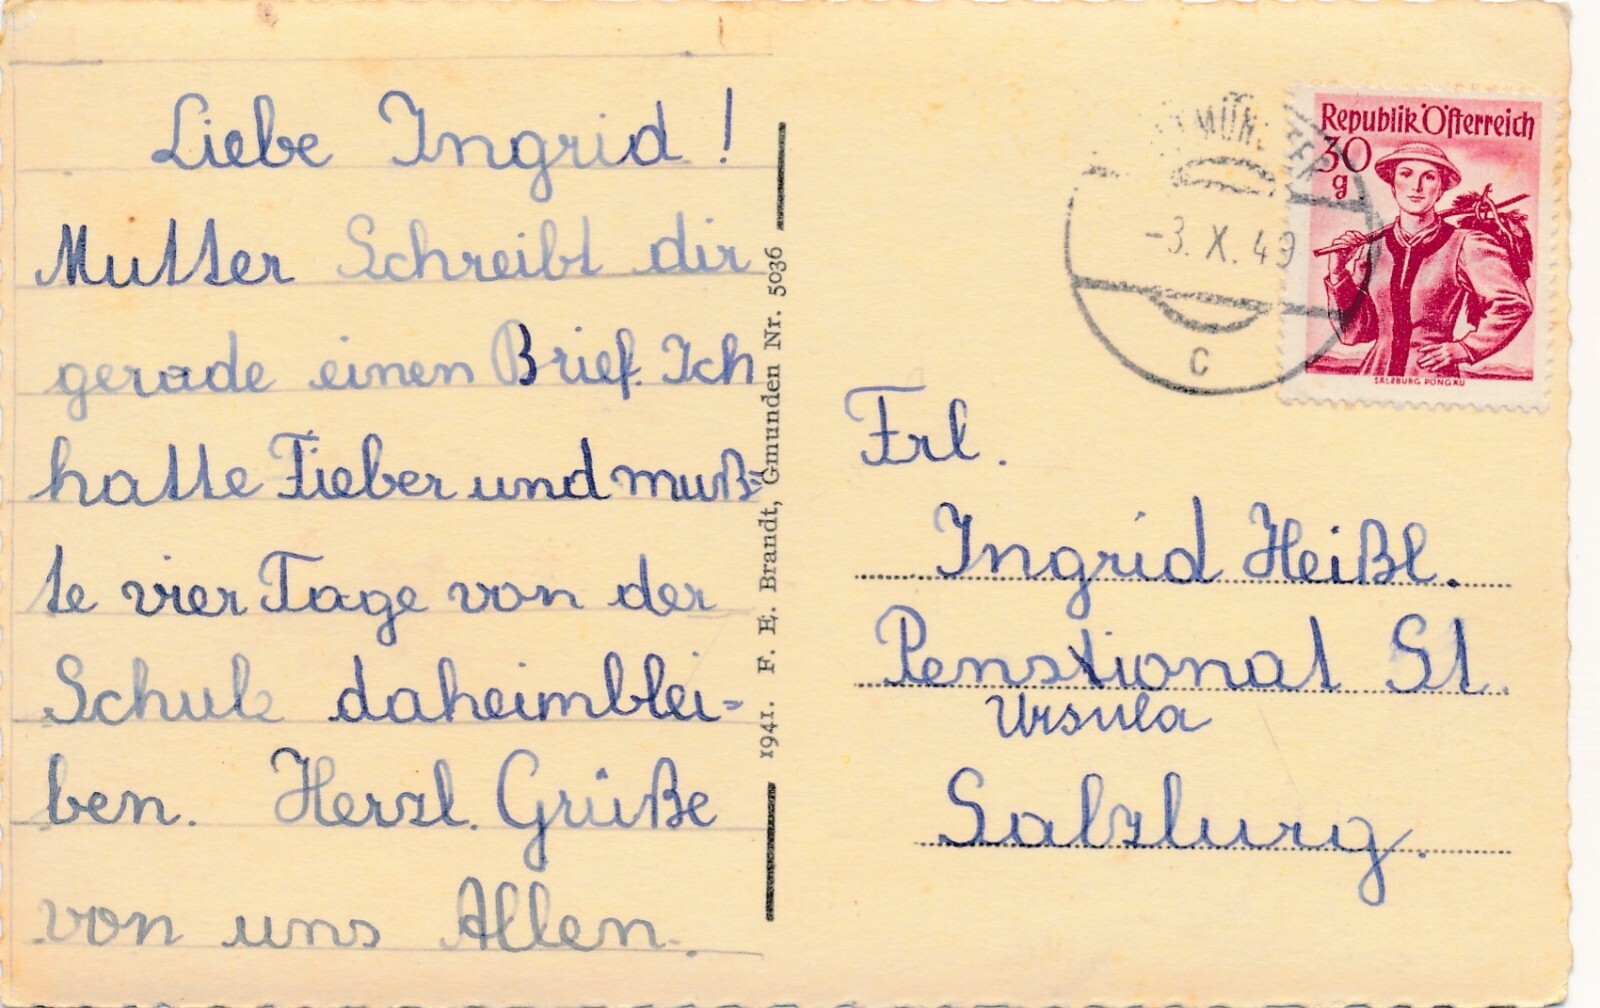 Liebe Ingrid!
Mutter Schreibt dir
gerade einen Brief. Ich
hatte Fieber und muß=
te vier Tage von der
Schule daheimblei=
ben. Herzl. Grüße
von uns Allen.
1941. F. E. Brandt, Gmunden Nr. 5036
-3. X. 49
C
Republik Österreich
30
g
SALZBURG PONGAU
Frl.
Ingrid Heißl.
Penstional St.
Ursula
Salzburg.